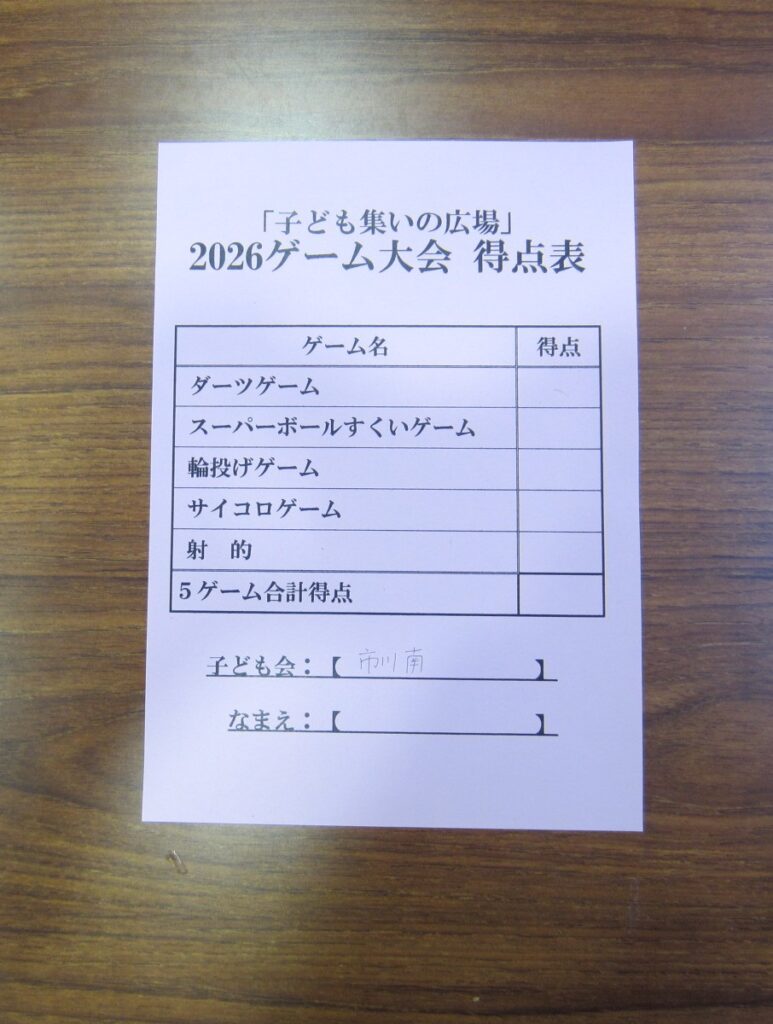 「子ども集いの広場」
2026ゲーム大会 得点表
ゲーム名 得点
ダーツゲーム
スーパーボールすくいゲーム
輪投げゲーム
サイコロゲーム
射　的
５ゲーム合計得点
子ども会：【 市川南 】
なまえ：【 】